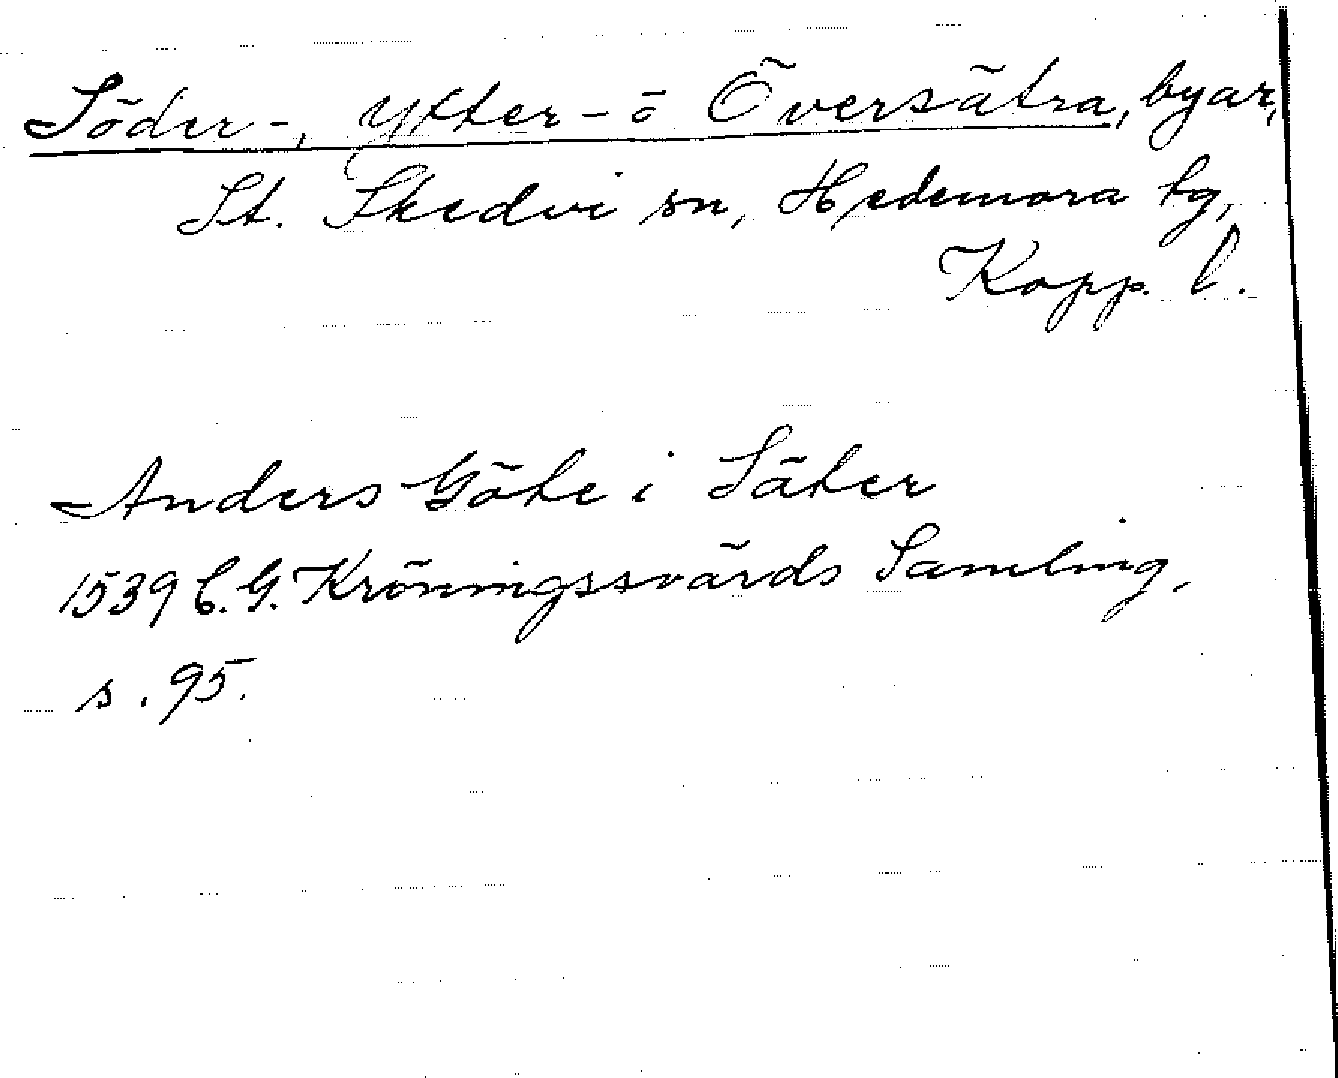 Söder-, Ytter- o Översätra, byar,
St. Skedvi sn, Hedemora tg,
Kopp. l.
Anders Göte i Säter
1539 C. G. Kröningssvärds Samling,
s. 95.